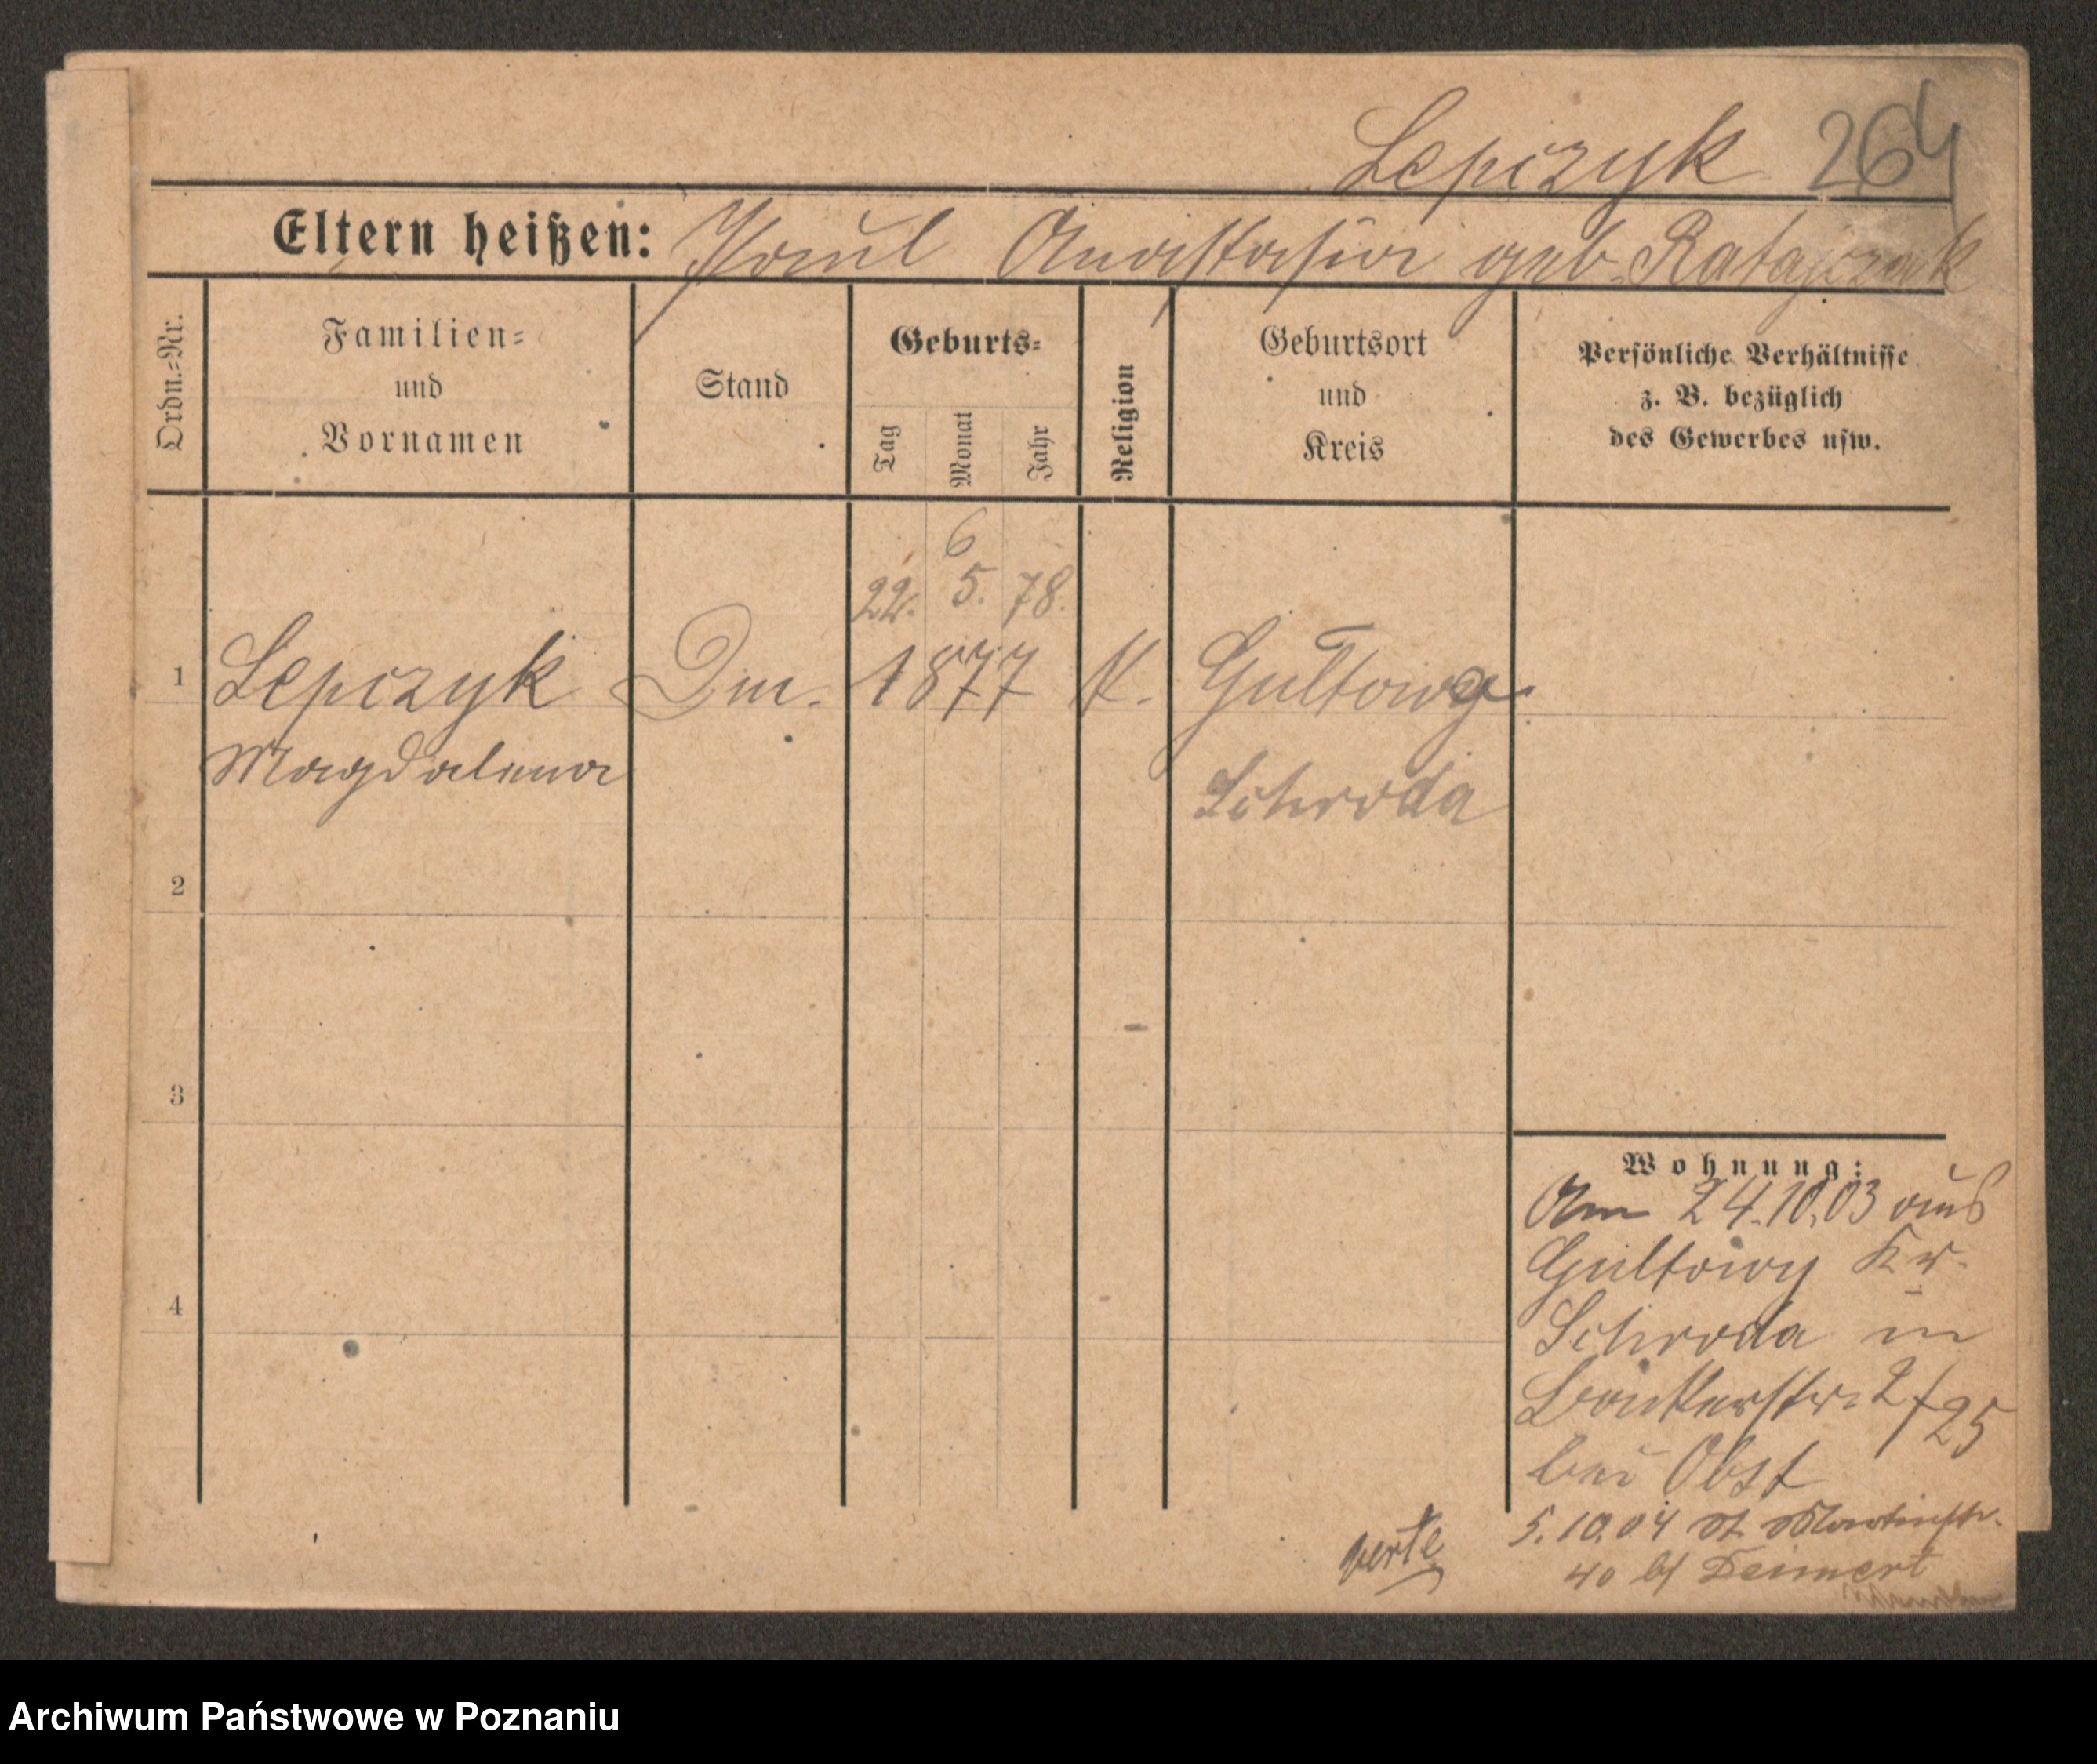 Lepczyk 264
Eltern heißen: Paul Anastasia geb. Ratajczak
Ordn.-Nr.
Familien-
und
Vornamen
Stand
Geburts-
Tag
Monat
Jahr
Religion
Geburtsort
und
Kreis
Persönliche Verhältnisse
z. B. bezüglich
des Gewerbes usw.
6
22. 5. 78.
1 Lepczyk Dm. 1877 K. Gultowy
Magdalena Schroda
2
3
4
Wohnung:
Am 24.10.03 aus
Gultowy Kr.
Schroda in
2/25
bei Obst
5.10.04 St. Martinstr.
40 b/ Deimert
verte
Archiwum Państwowe w Poznaniu